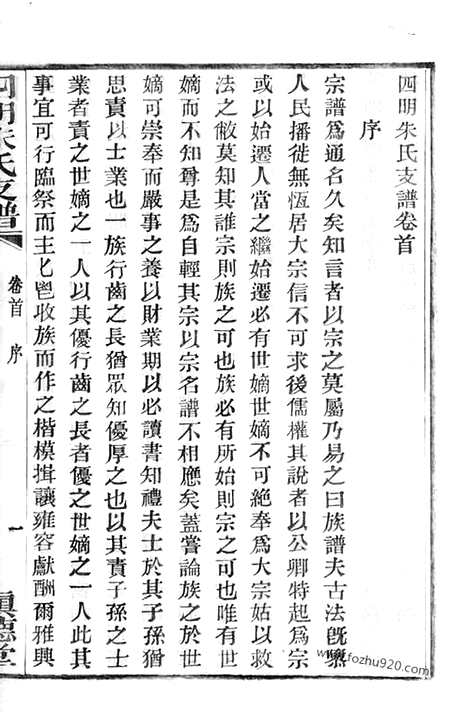 四明朱氏支譜卷首
序
宗譜爲通名久矣知言者以宗之莫屬乃易之曰族譜夫古法旣隳
人民播徙無恆居大宗信不可求後儒權其說者以公卿特起爲宗
或以始遷人當之繼始遷必有世嫡世嫡不可絶奉爲大宗姑以救
法之敝莫知其誰宗則族之可也族必有所始則宗之可也唯有世
嫡而不知尊是爲自輕其宗以宗名譜不相應矣蓋嘗論族之於世
嫡可崇奉而嚴事之養以財業期以必讀書知禮夫士於其子孫猶
思責以士業也一族行齒之長猶眾知優厚之也以其責子孫之士
業者責之世嫡之一人以其優行齒之長者優之世嫡之一人此其
事宜可行臨祭而主匕鬯收族而作之楷模揖讓雍容獻酬爾雅興
四明朱氏支譜
卷首 序
一
眞德堂
www.fozhu920.com